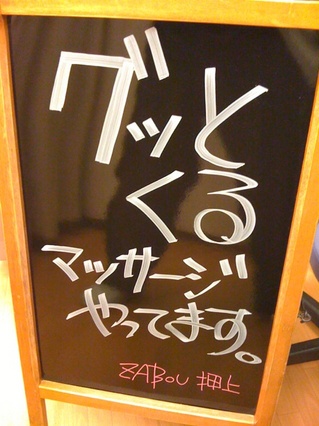 グッと
くる
マッサージ
やってます。
ZABOU 押上